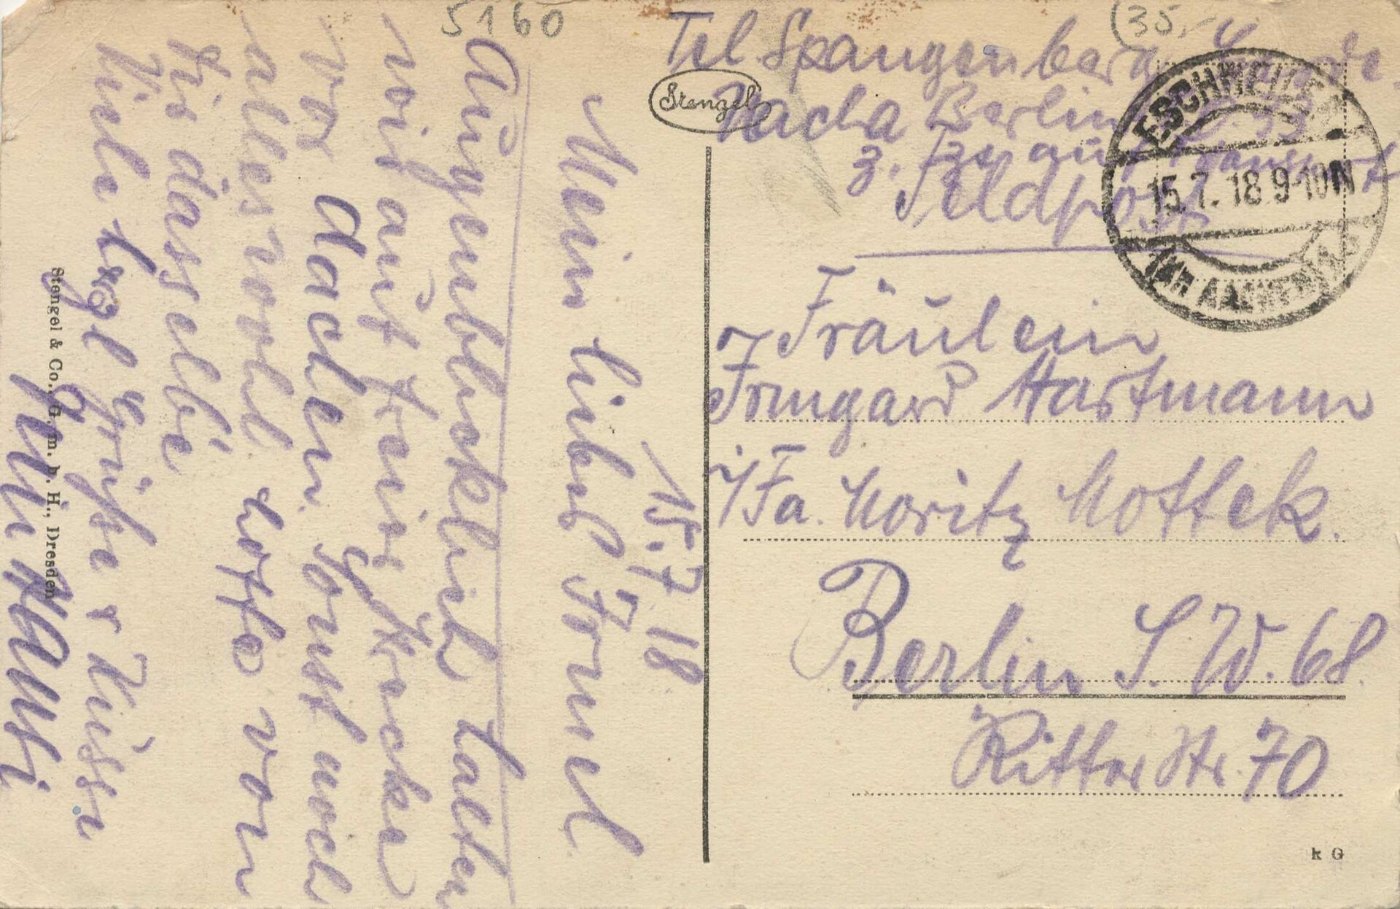 5160
(35,-
Tel Spangenberg
Stengel
Nacha Berlin
z. Zt. auf Transport
Feldpost
ESCHWEILER 1
15.7.18 9-10N
(KR AACHEN)
Fräulein
Irmgard Hartmann
i/Fa. Moritz Mottek.
Berlin S.W. 68.
Ritterstr. 70
k G
15.7 18
Mein liebes Irmel
Augenblicklich halten
wir auf freier Strecke
vor Aachen. Sonst noch
alles wohl. hoffe von
Dir dasselbe
Viele herzl Grüße + Küsse
Hansi
Stengel & Co., G. m. b. H., Dresden